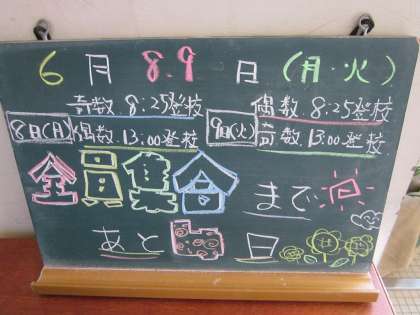 6月8.9日(月・火)
8日(月) 奇数 8:25登校
偶数 13:00登校
9日(火) 偶数 8:25登校
奇数 13:00登校
全員集合まで
あと 日